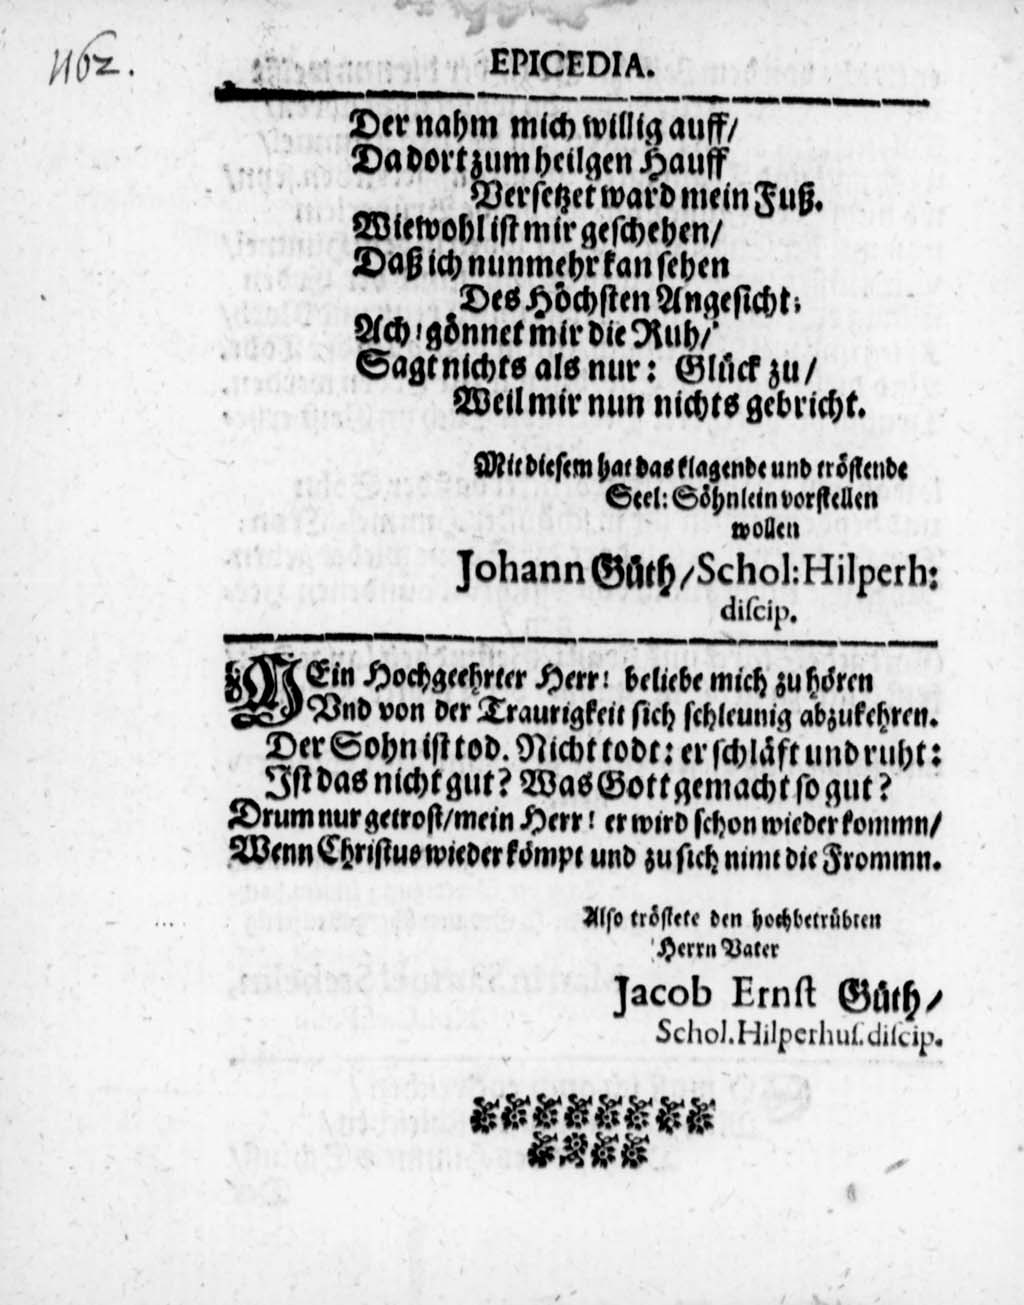 1162.
EPICEDIA.
Der nahm mich willig auff/
Da dort zum heilgen Hauff
Versetzet ward mein Fuß.
Wie wohl ist mir geschehen/
Daß ich nunmehr kan sehen
Des Höchsten Angesicht;
Ach! gönnet mir die Ruh/
Sagt nichts als nur: Glück zu/
Weil mir nun nichts gebricht.
Mit diesem hat das klagende und tröstende
Seel: Söhnlein vorstellen
wollen
Johann Güth/Schol:Hilperh:
diſcip.
MEin Hochgeehrter Herr! beliebe mich zu hören
Vnd von der Traurigkeit sich schleunig abzukehren.
Der Sohn ist tod. Nicht todt: er schläft und ruht:
Ist das nicht gut? Was Gott gemacht so gut?
Drum nur getrost/mein Herr! er wird schon wieder kommn/
Wenn Christus wieder kömpt und zu sich nimt die Frommn.
Also tröstete den hochbetrübten
Herrn Vater
Jacob Ernſt Güth/
Schol.Hilperhuſ.diſcip.